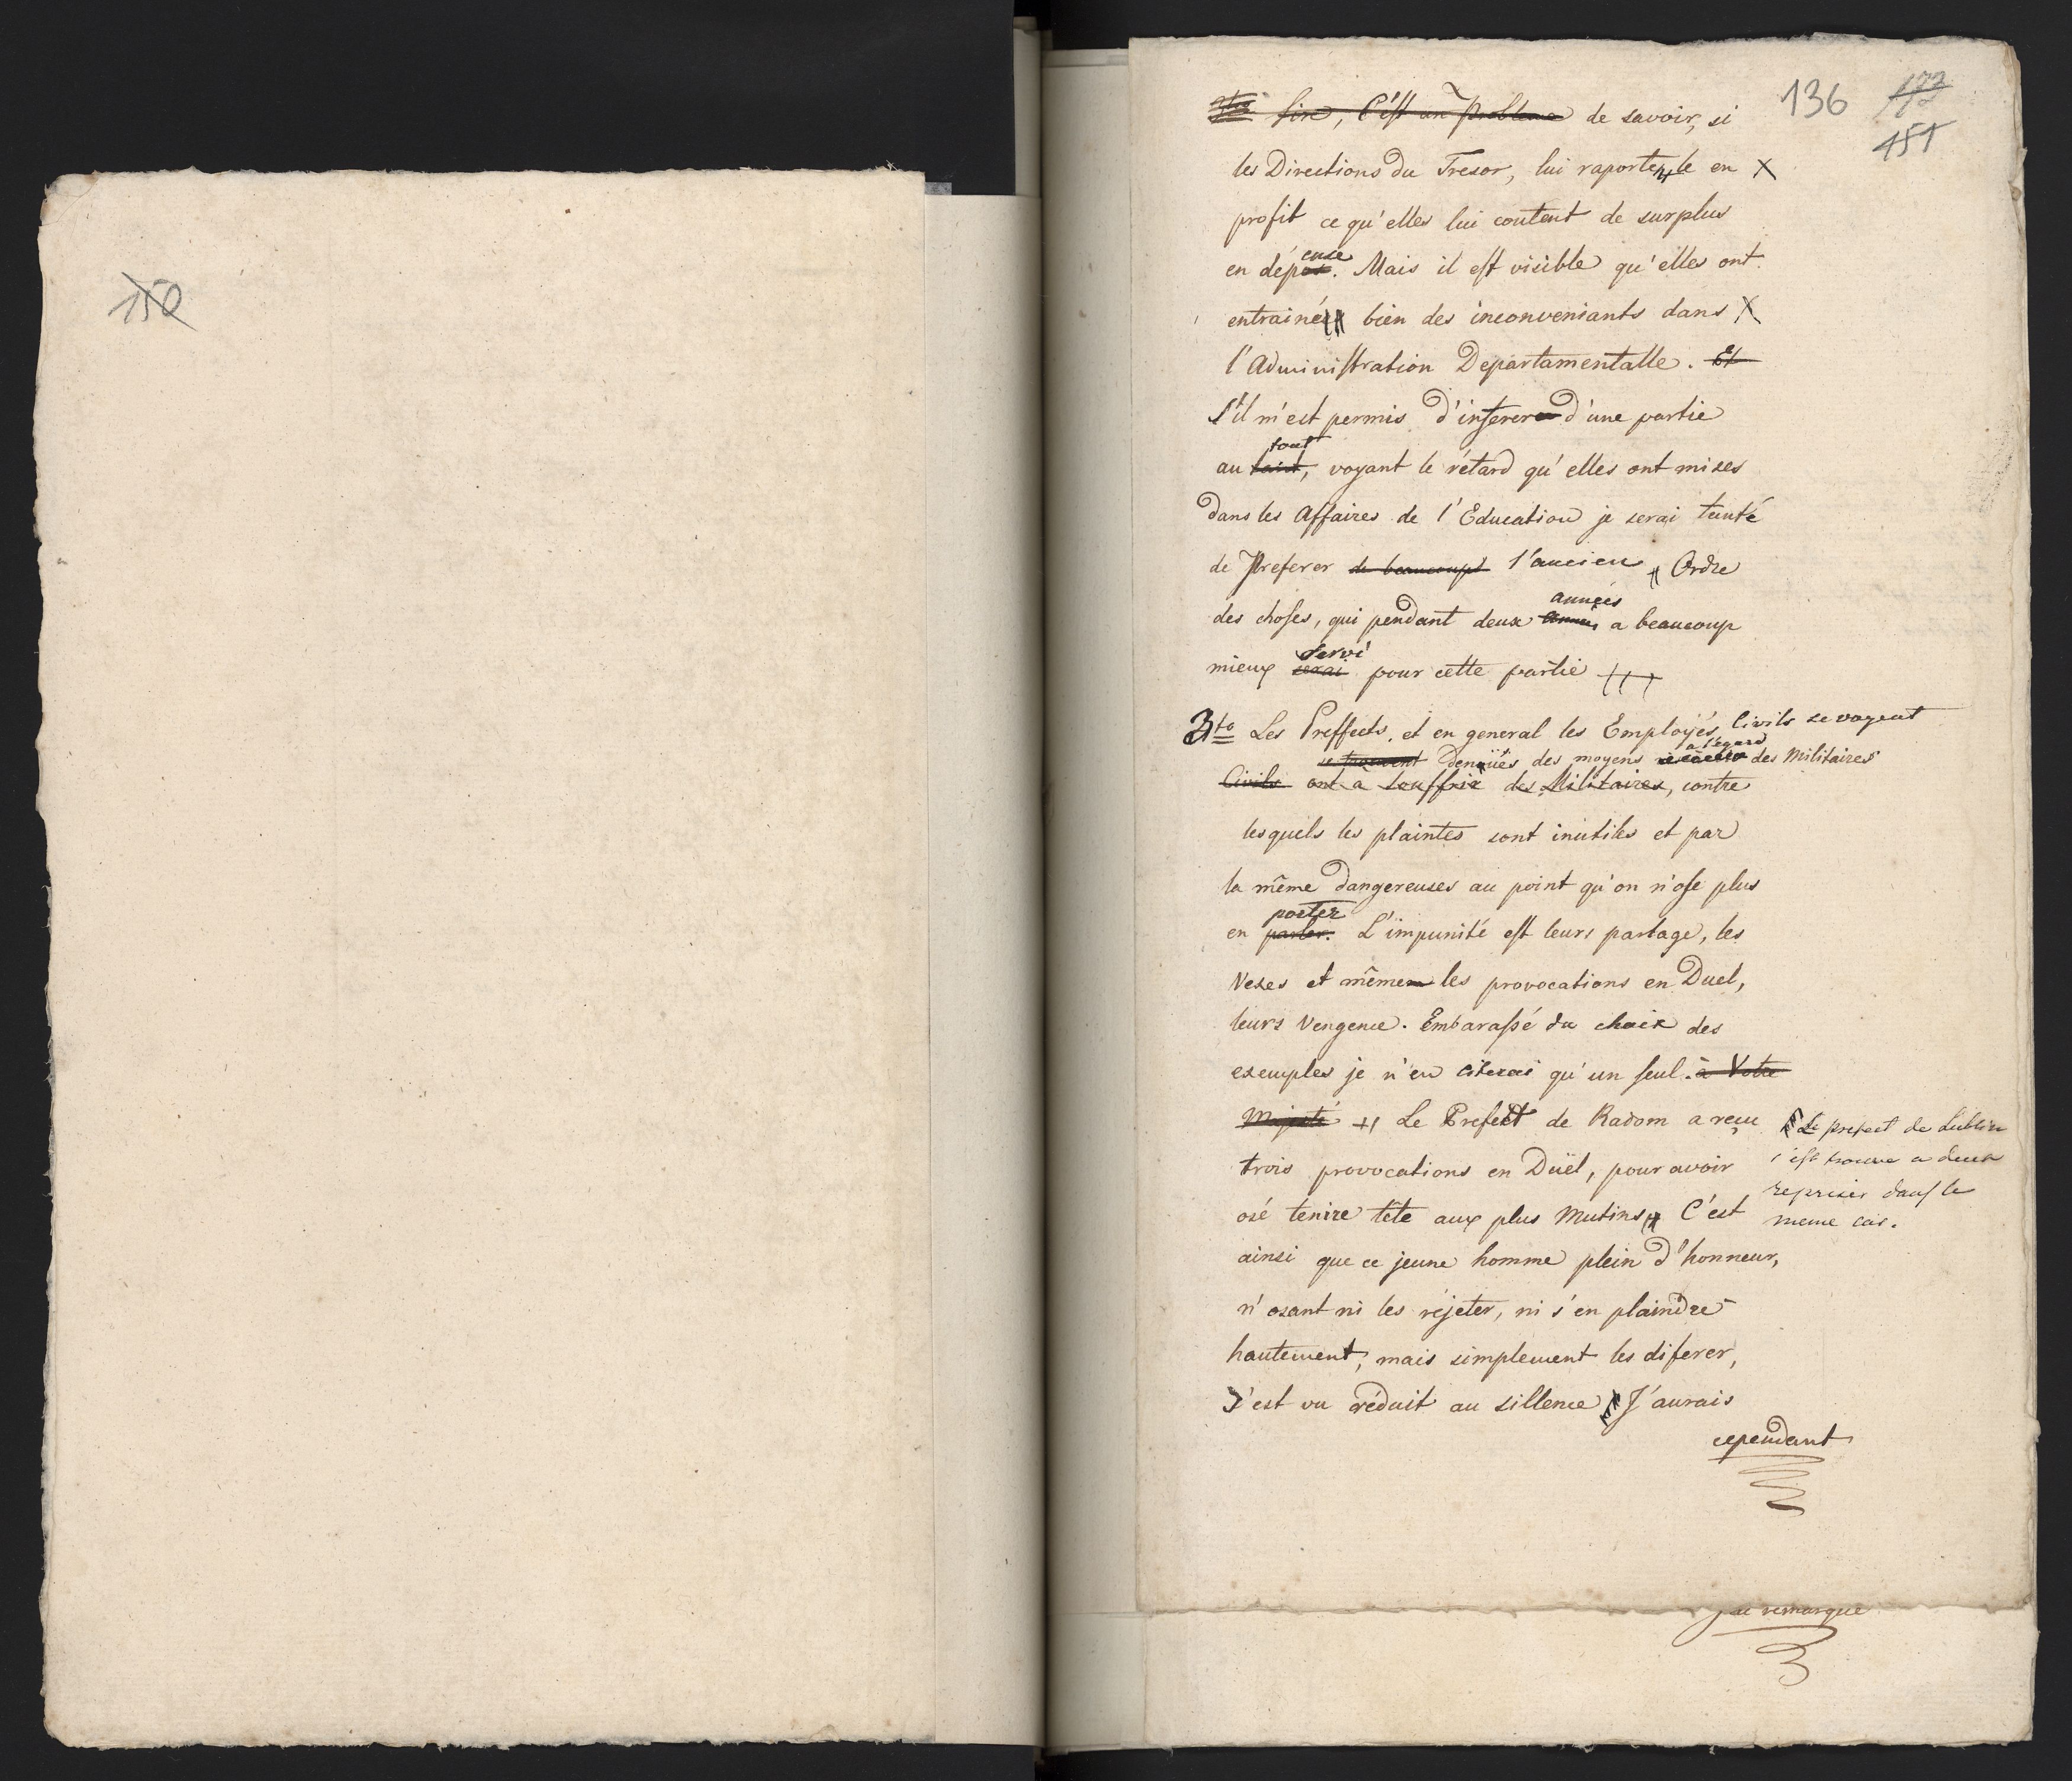 150
136 173
151
Sire, C'est un Probleme de savoir, si
les Directions du Tresor, lui raportent le en X
profit ce qu'elles lui coutent de surplus
ense
en dépos. Mais il est visible qu'elles ont
entrainé bien des inconveniants dans X
l'Administration Departamentalle. Et
S'il m'est permis d'inferer d'une partie
tout
au taut, voyant le rétard qu'elles ont mises
dans les Affaires de l'Education je serai tenté
de Preferer de beaucoup l'ancien Ordre
années
des choses, qui pendant deux annes a beaucoup
servi
mieux serai pour cette partie
3to Les Preffects, et en general les Employés Civils se voyent
a l'egard
se trouvent denüés des moyens des Militaires
Civils ont a Souffrir des Militaires, contre
lesquels les plaintes sont inutiles et par
la même dangereuses au point qu'on n'ose plus
porter
en parler. L'impunité est leurs partage, les
Vexes et même les provocations en Duel,
leurs Vengence. Embarassé du choix des
exemples je n'en citerai qu'un seul. à Votre
Majesté Le Prefect de Radom a reçu
trois provocations en Düel, pour avoir
osé tenire tête aux plus Mutins C'est
Le prefect de Lublin
s'est trouve a deux
reprises dans le
meme cas.
ainsi que ce jeune homme plein d'honneur,
n'osant ni les réjeter, ni s'en plaindre
hautement, mais simplement les diferer,
S'est vu réduit au sillence J'aurais
cependant
j'ai remarque